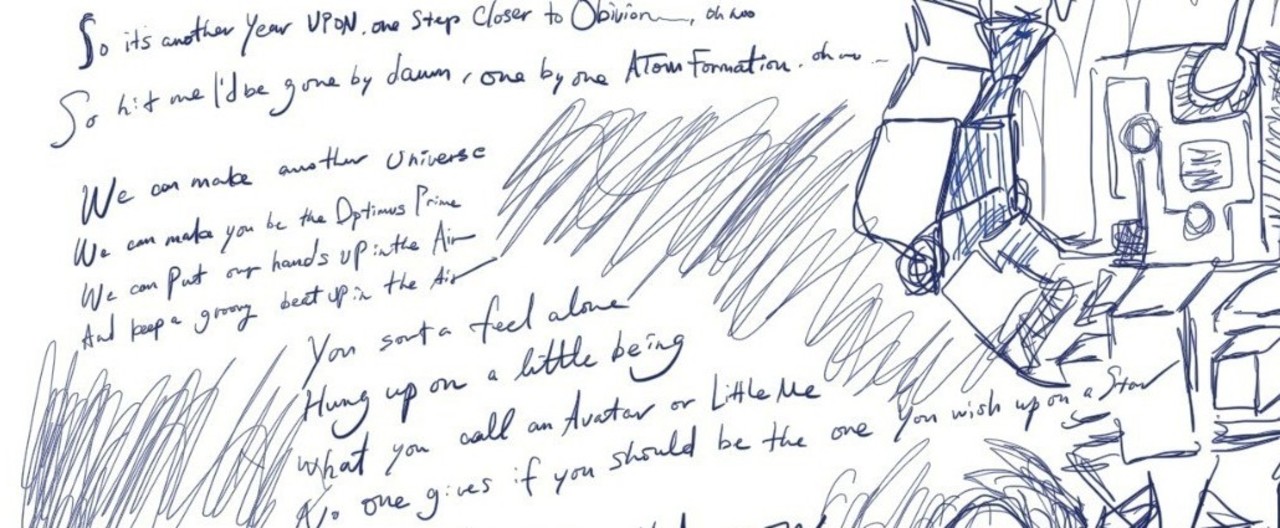 So its another Year UPON. one Step Closer to Obivion, oh no
So hit me I'd be gone by dawn, one by one ATom Formation. oh no
We can make another Universe
We can make you be the Optimus Prime
We can Put our hands UP in the Air
And keep a groovy beat up in the Air
You sorta feel alone
Hung up on a little being
What you call an Avatar or Little Me
No one gives if you should be the one you wish upon a Star